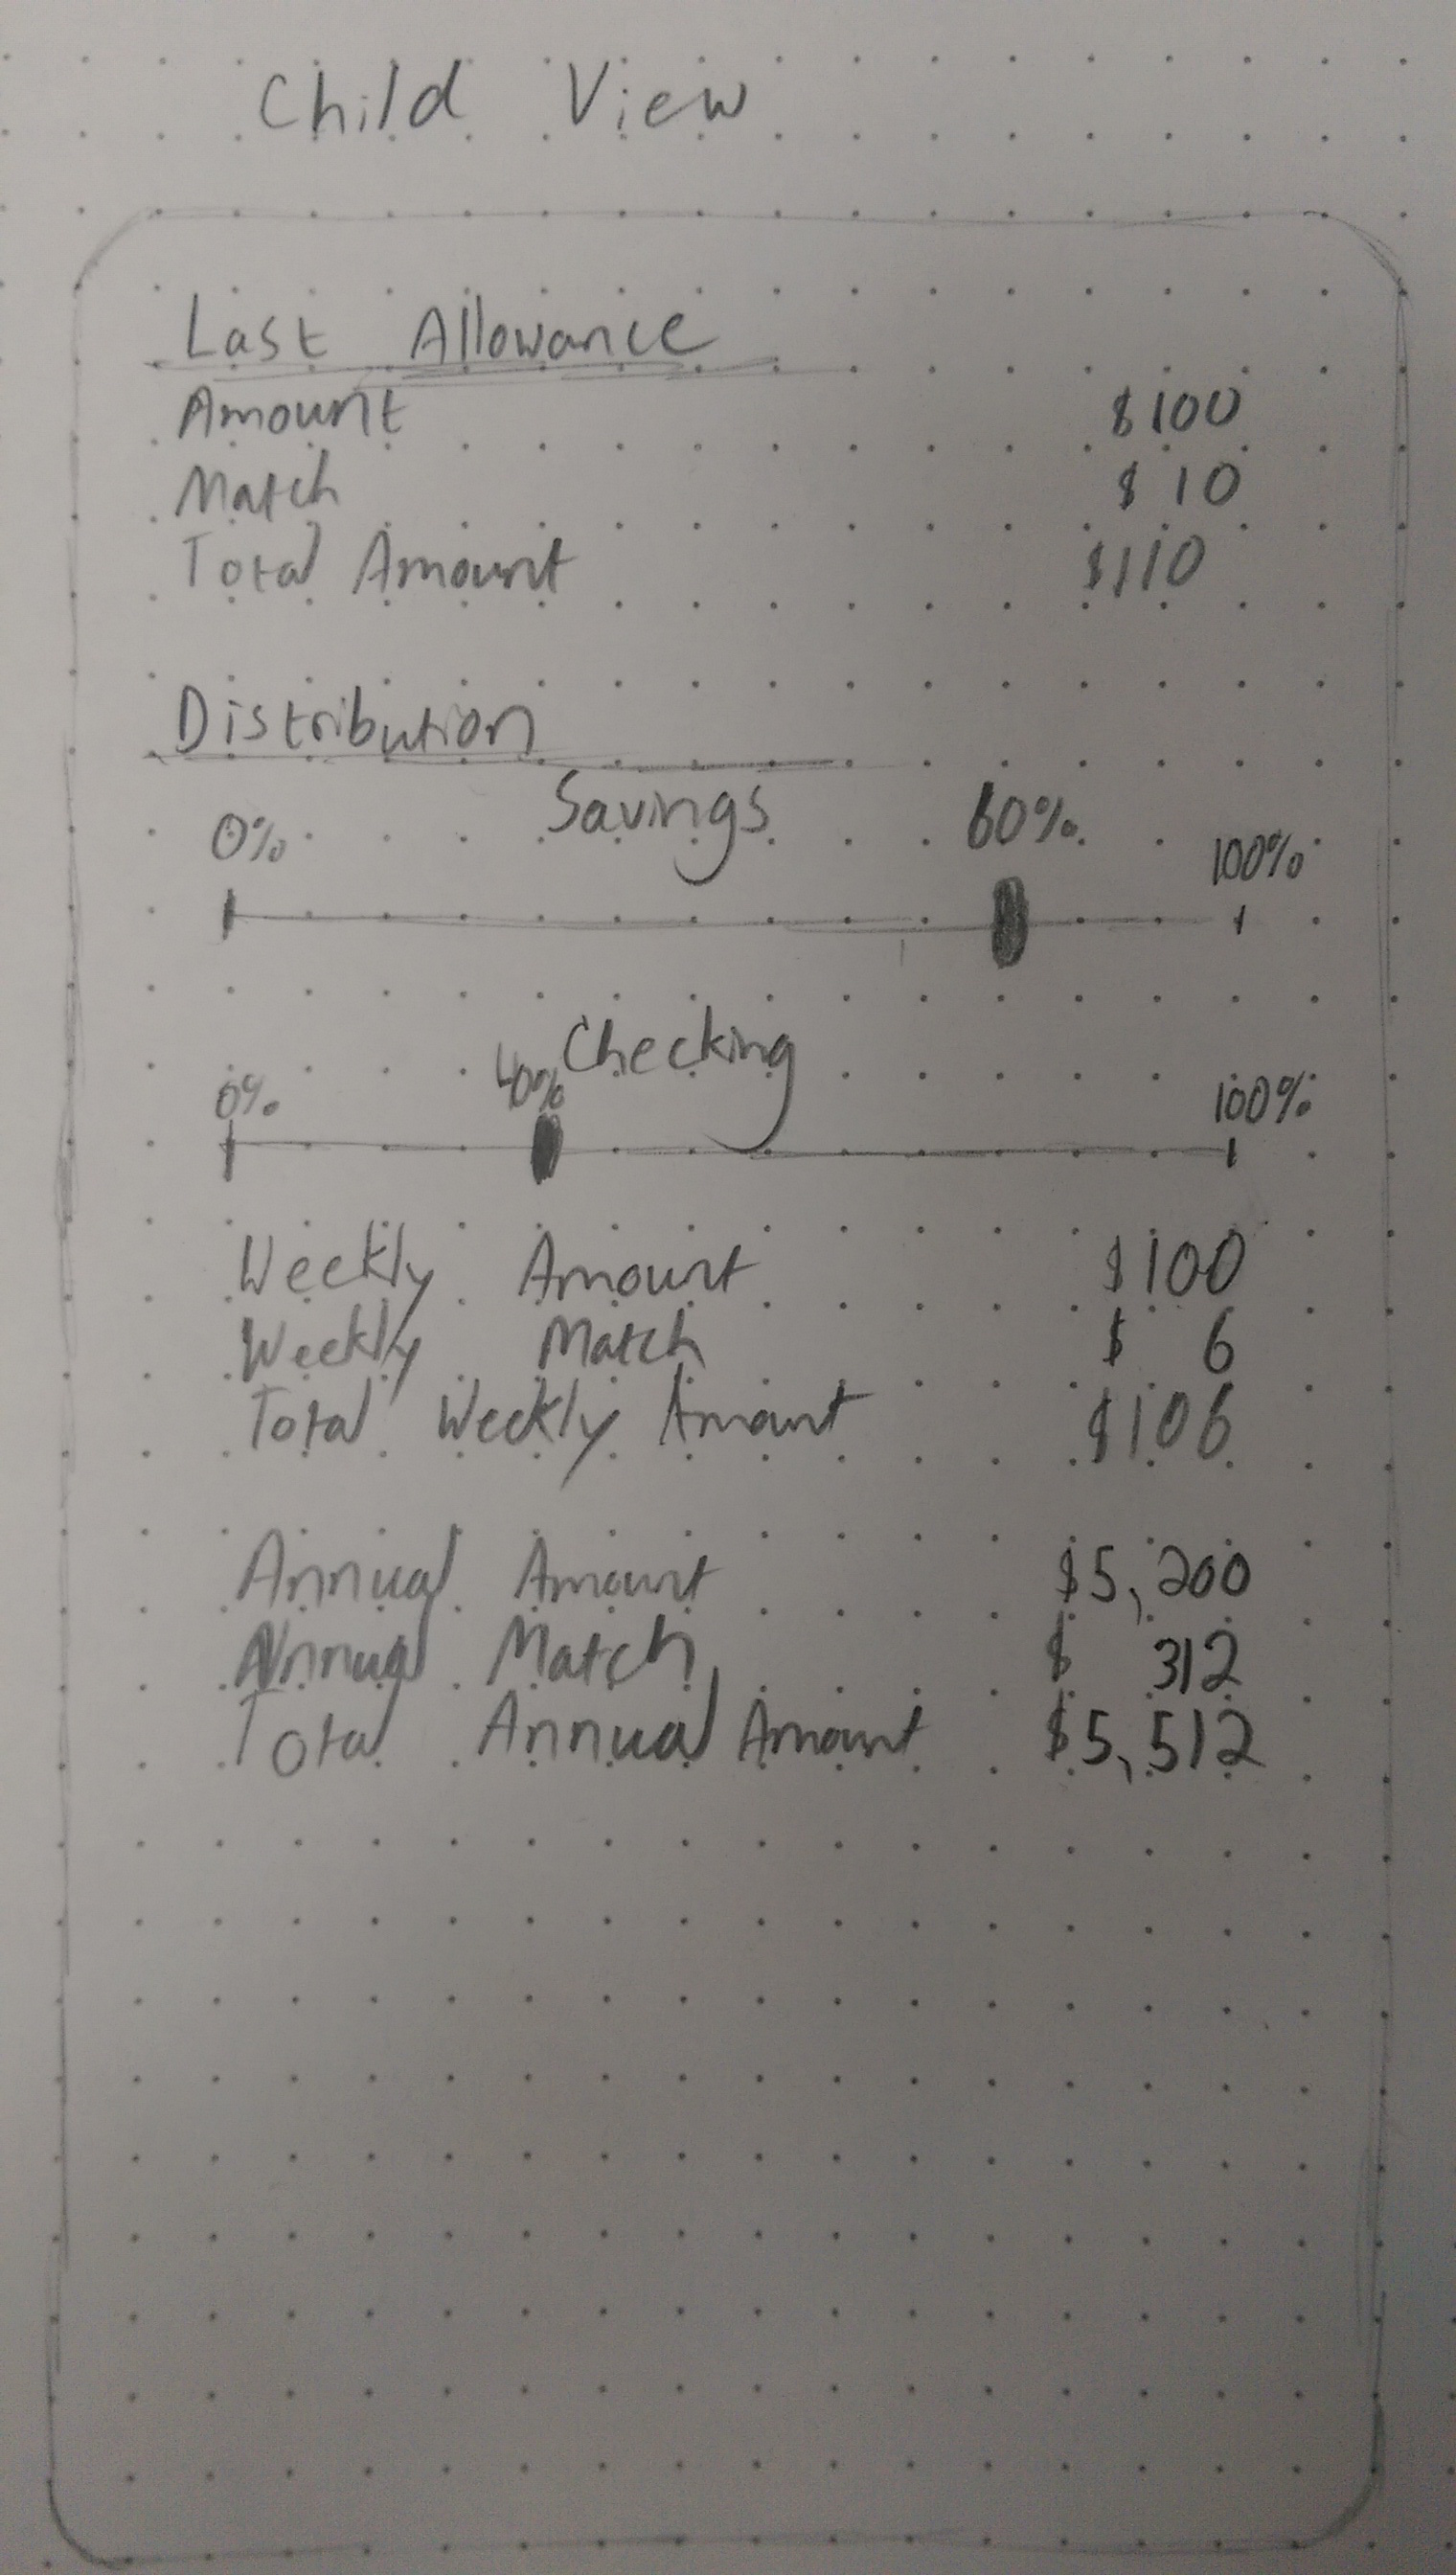 Child View
Last Allowance
Amount $100
Match $ 10
Total Amount $110
Distribution
Savings
0% 60% 100%
Checking
0% 40% 100%
Weekly Amount $100
Weekly Match $ 6
Total Weekly Amount $106
Annual Amount $5,200
Annual Match $ 312
Total Annual Amount $5,512